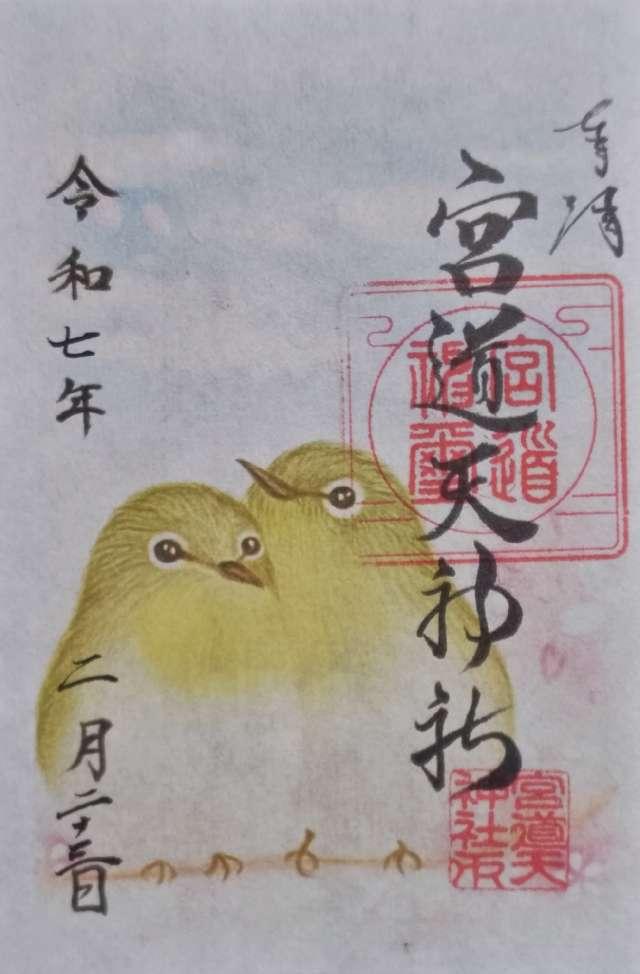 奉
宮道天神社
宮道
宮道天
神社印
令和七年
二月二十三日